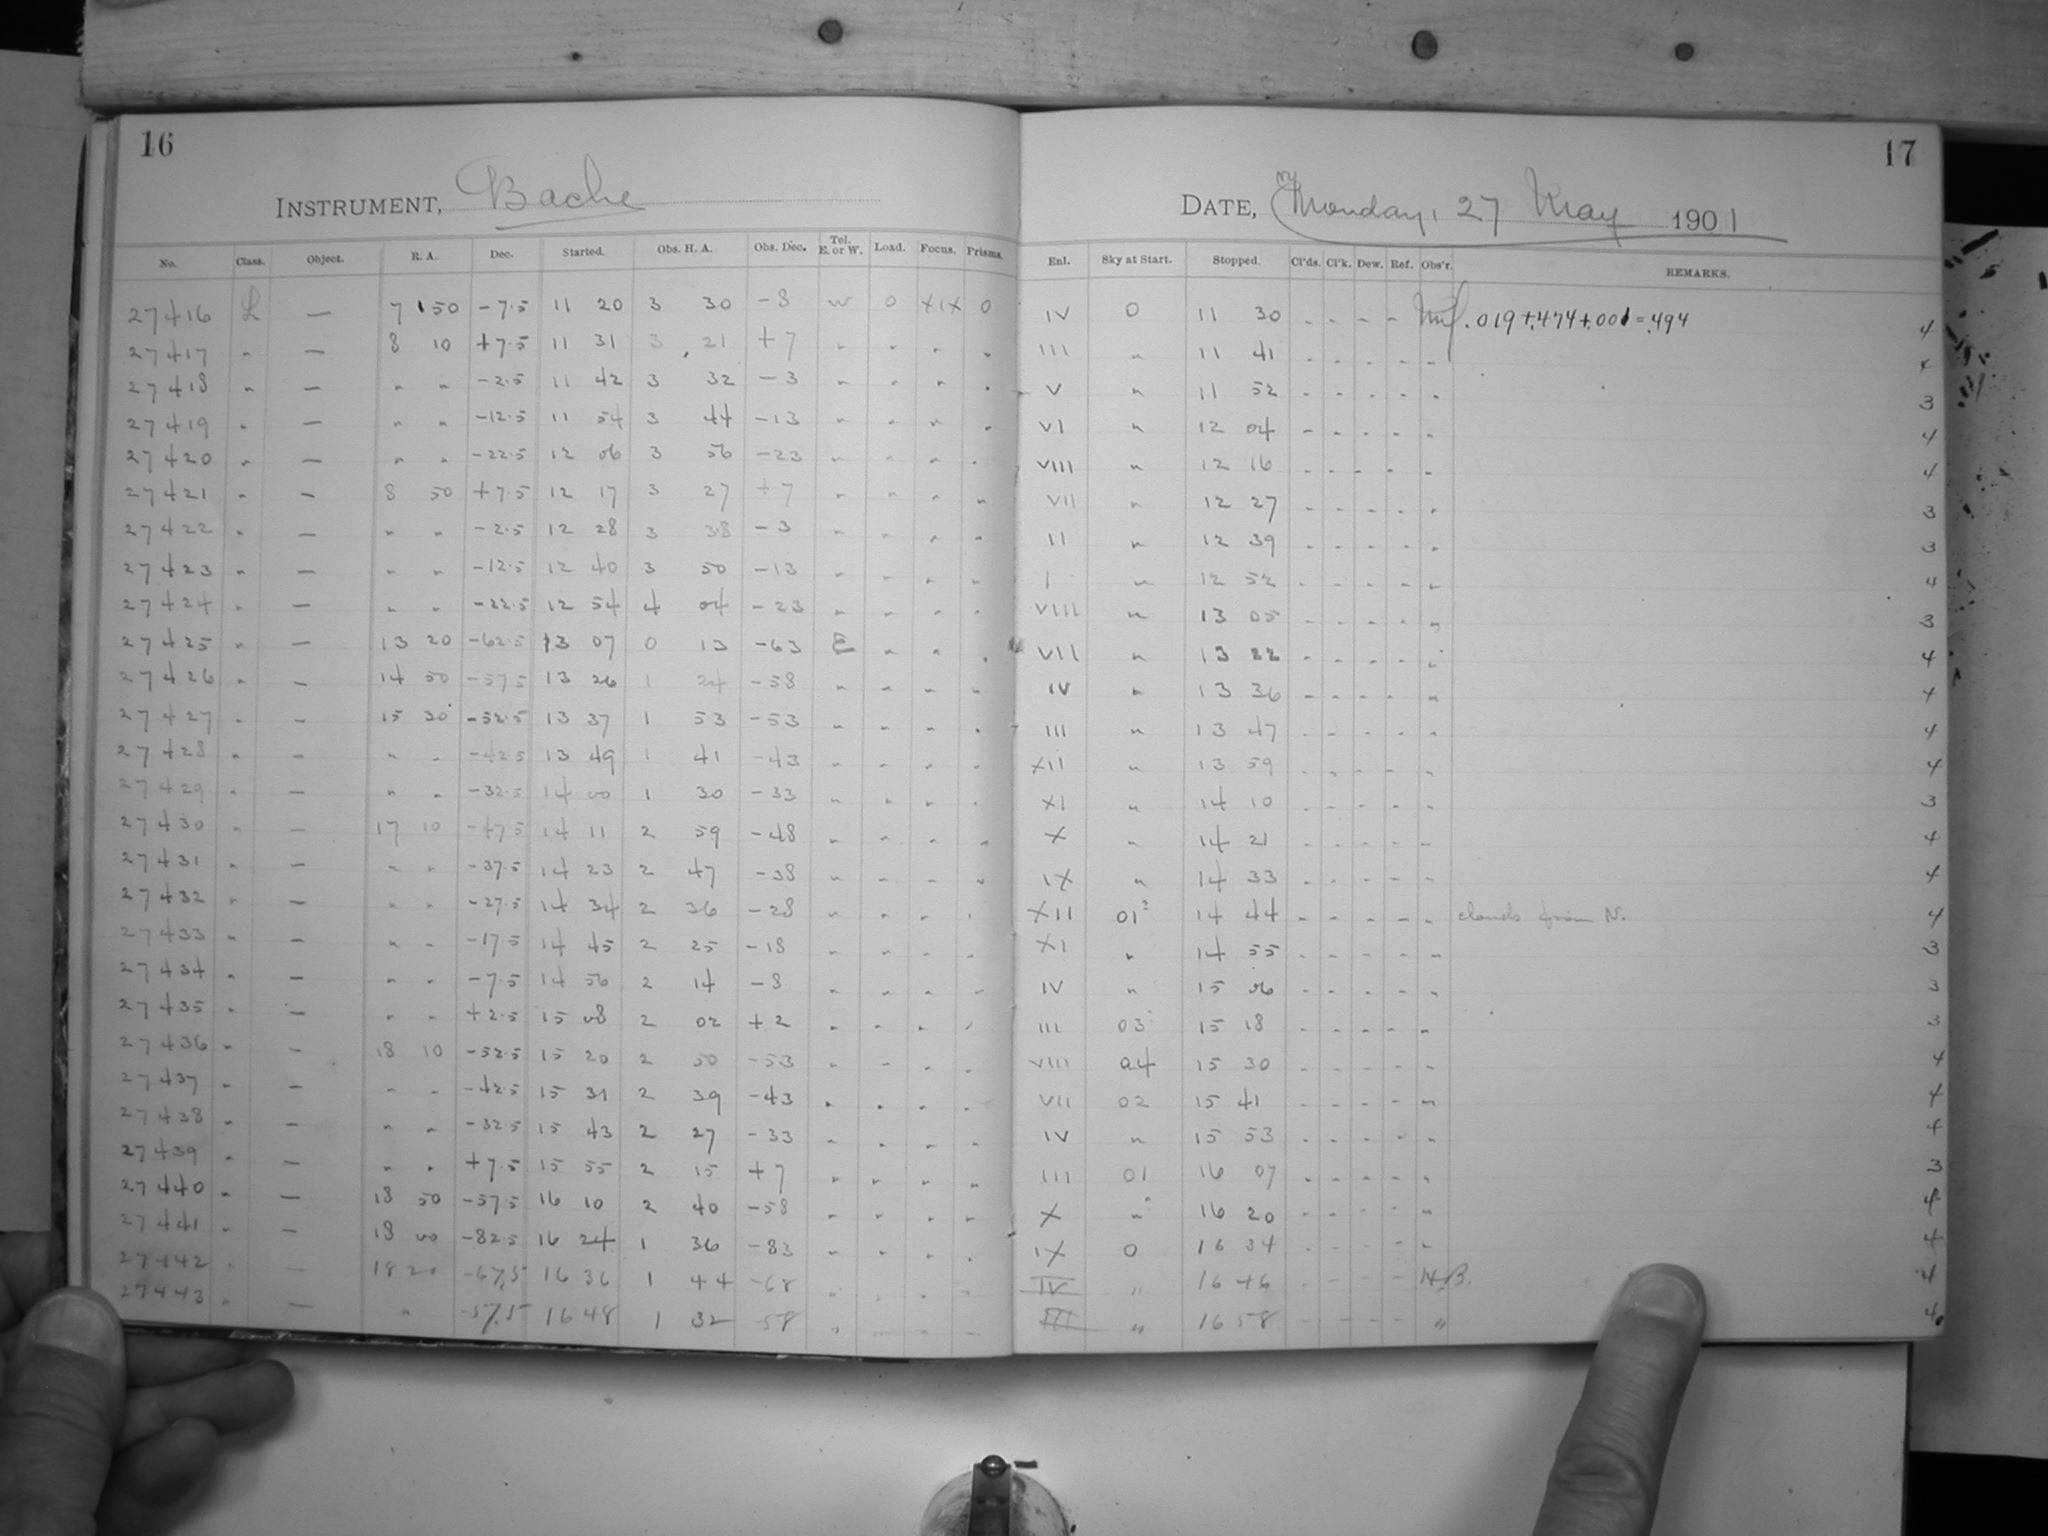 16
17
INSTRUMENT, Bache
DATE, Monday, 27 May 1901
No. Class. Object. R. A. Dec. Started. Obs. H. A. Obs. Dec. Tel. E. or W. Load. Focus. Prisms. Enl. Sky at Start. Stopped. Cl'ds. Cl'k. Dew. Ref. Obs'r. REMARKS.
27416 L — 7 50 -7.5 11 20 3 30 -8 W 0 XIX 0 IV 0 11 30 - - - - .019+.474+.001=.494 4
27417 " — 8 10 +7.5 11 31 3 21 +7 " " " " III " 11 41 - - - - " 4
27418 " — " " -2.5 11 42 3 32 -3 " " " " V " 11 52 - - - - " 3
27419 " — " " -12.5 11 54 3 44 -13 " " " " VI " 12 04 - - - - " 4
27420 " — " " -22.5 12 06 3 56 -23 " " " " VIII " 12 16 - - - - " 4
27421 " — 8 50 +7.5 12 17 3 27 +7 " " " " VII " 12 27 - - - - " 3
27422 " — " " -2.5 12 28 3 38 -3 " " " " II " 12 39 - - - - " 3
27423 " — " " -12.5 12 40 3 50 -13 " " " " I " 12 52 - - - - " 4
27424 " — " " -22.5 12 54 4 04 -23 " " " " VIII " 13 05 - - - - " 3
27425 " — 13 20 -62.5 13 07 0 13 -63 E " " " VII " 13 22 - - - - " 4
27426 " — 14 50 -57.5 13 26 1 24 -58 " " " " IV " 13 36 - - - - " 4
27427 " — 15 30 -52.5 13 37 1 53 -53 " " " " III " 13 47 - - - - " 4
27428 " — " " -42.5 13 49 1 41 -43 " " " " XII " 13 59 - - - - " 4
27429 " — " " -32.5 14 00 1 30 -33 " " " " XI " 14 10 - - - - " 3
27430 " — 17 10 -47.5 14 11 2 59 -48 " " " " X " 14 21 - - - - " 4
27431 " — " " -37.5 14 23 2 47 -38 " " " " IX " 14 33 - - - - " 4
27432 " — " " -27.5 14 34 2 36 -28 " " " " XII 01? 14 44 - - - - " clouds from N. 4
27433 " — " " -17.5 14 45 2 25 -18 " " " " XI " 14 55 - - - - " 3
27434 " — " " -7.5 14 56 2 14 -8 " " " " IV " 15 06 - - - - " 3
27435 " — " " +2.5 15 08 2 02 +2 " " " " III 03 15 18 - - - - " 3
27436 " — 18 10 -52.5 15 20 2 50 -53 " " " " VIII 04 15 30 - - - - " 4
27437 " — " " -42.5 15 31 2 39 -43 " " " " VII 02 15 41 - - - - " 4
27438 " — " " -32.5 15 43 2 27 -33 " " " " IV " 15 53 - - - - " 4
27439 " — " " +7.5 15 55 2 15 +7 " " " " III 01 16 07 - - - - " 3
27440 " — 18 50 -57.5 16 10 2 40 -58 " " " " X " 16 20 - - - - " 4
27441 " — 18 00 -82.5 16 24 1 36 -83 " " " " IX 0 16 34 - - - - " 4
27442 " — 18 20 -67.5 16 36 1 44 -68 " " " " IV " 16 46 - - - - H.B. 4
27443 " — " -57.5 16 48 1 32 -58 " " " " III " 16 58 - - - - " 4